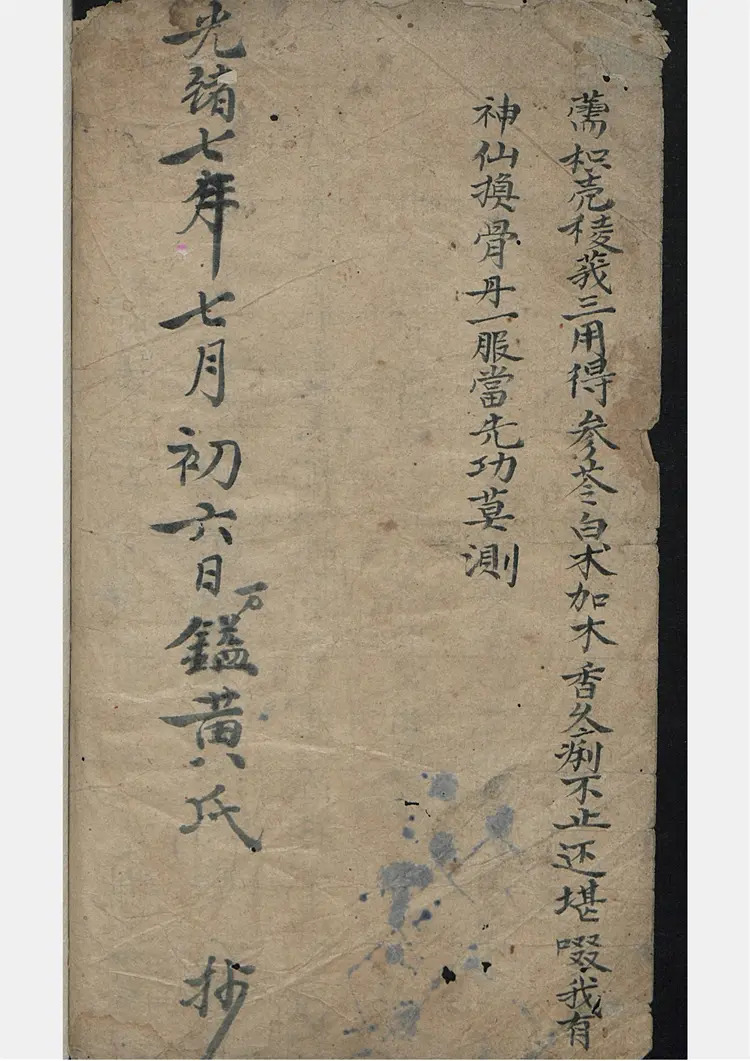 薷枳壳稜莪三用得参苓白术加木香久痢不止还堪啜我有
神仙换骨丹一服當先功莫測
光緒七年七月初六日鎰黄氏抄
一万